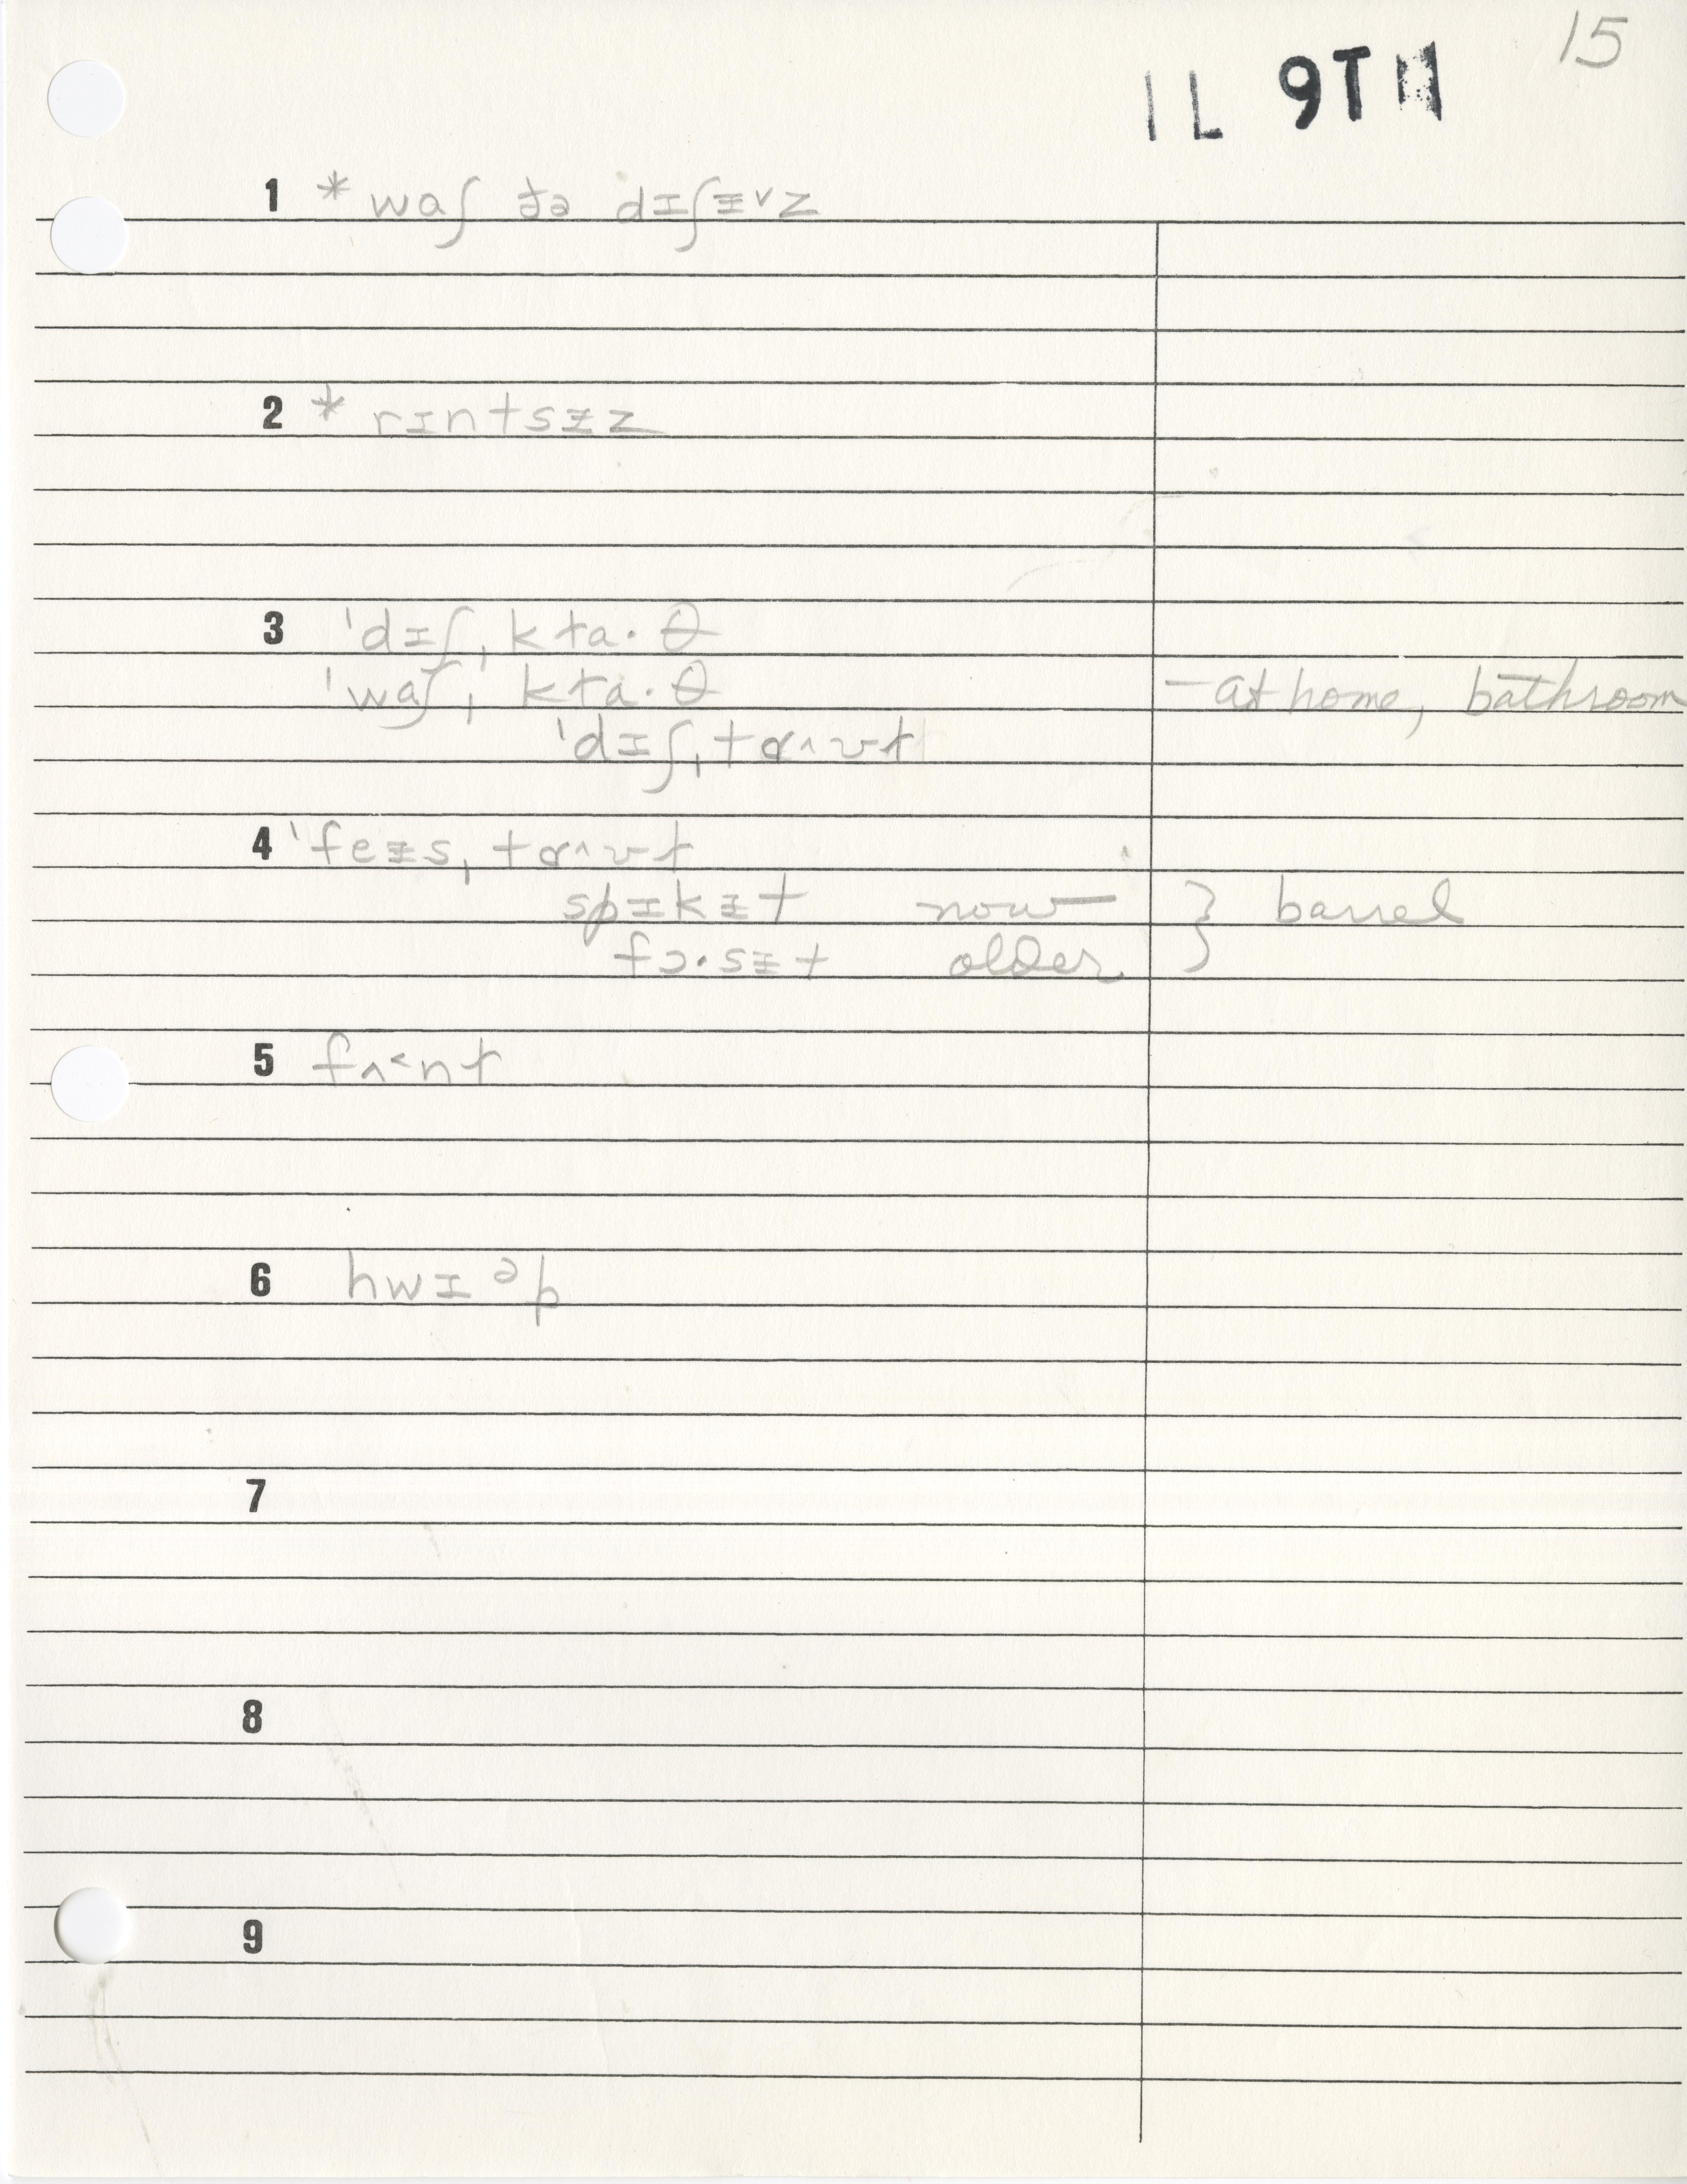 15
IL 9TH
1 * waʃ ðə dɪʃɨᵛz
2 * rɪntsɨz
3 ˈdɪʃˌktɑ·θ
ˈwaʃˌktɑ·θ — at home, bathroom
ˈdɪʃˌtɑ^ʊt
4 ˈfeɨsˌtɑ^ʊt
spɪkɨt now — } barrel
fɔ·sɨt older
5 fʌ˂nt
6 hwɪᵊp
7
8
9